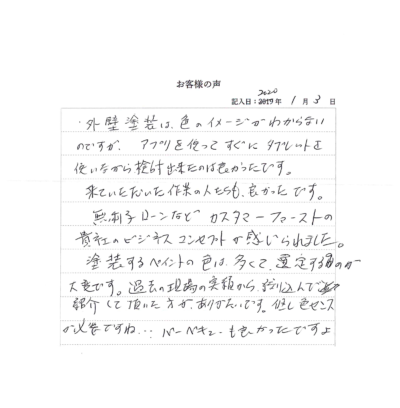 お客様の声
2020
記入日：2019年 1月 3日
・外壁塗装は、色のイメージがわからない
のですが、アプリを使ってすぐにタブレットを
使いながら検討出来たのは良かったです。
来ていただいた作業の人たちも、良かったです。
無利子ローンなど カスタマーファーストの
貴社のビジネスコンセプトが感じられました。
塗装するペイントの色は、多くて、選定するのが
大変です。過去の現場の実績から、絞り込んで
紹介して頂いた方が、ありがたいです。但し色センス
が必要ですね…! バーベキューも良かったですよ